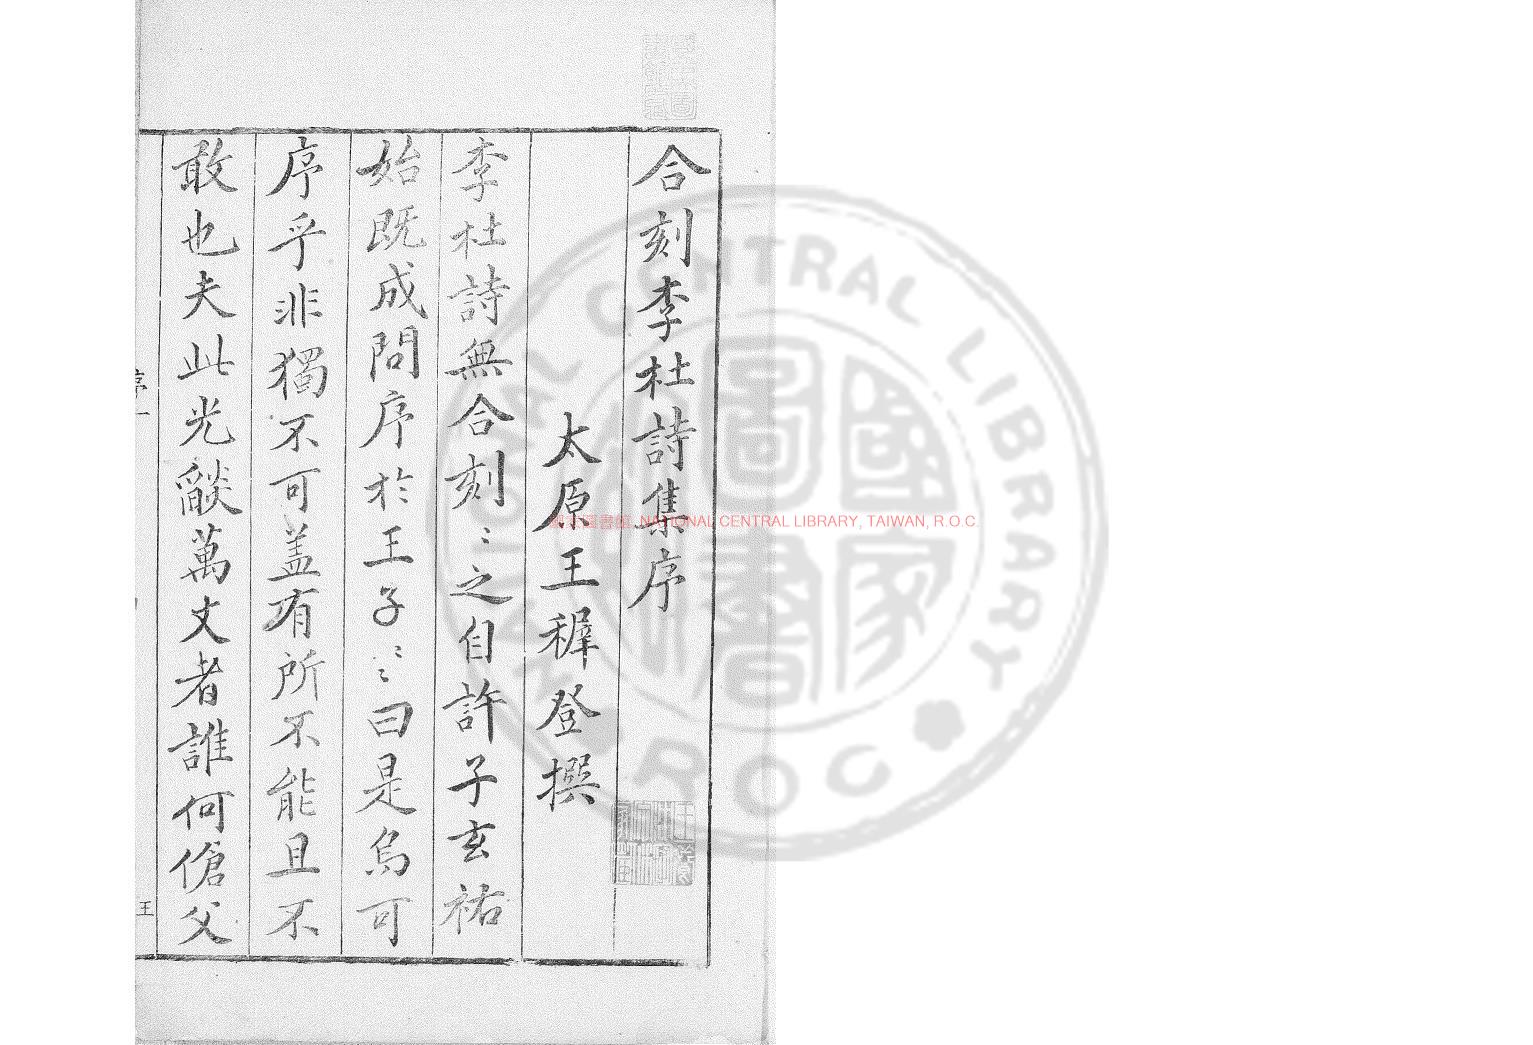 合刻李杜詩集序
太原王穉登撰
李杜詩無合刻〻之自許子玄祐
始既成問序於王子〻〻曰是烏可
序乎非獨不可盖有所不能且不
敢也夫此光燄萬丈者誰何傖父
序一
王
國家圖書館 NATIONAL CENTRAL LIBRARY, TAIWAN, R.O.C.
NATIONAL CENTRAL LIBRARY
國家圖書館
R O C